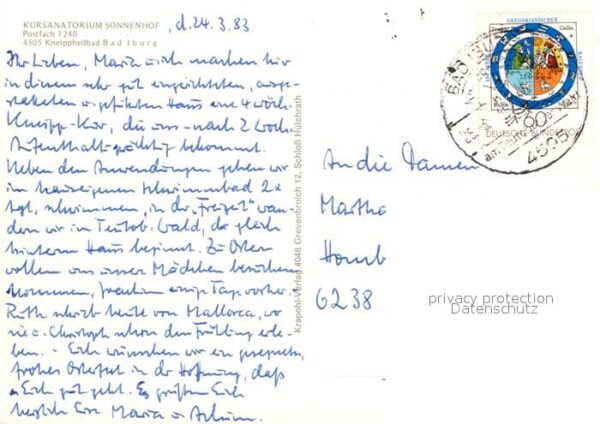 KURSANATORIUM SONNENHOF
Postfach 1240
4505 Kneippheilbad Bad Iburg
, d. 24.3.83
Ihr Lieben, Maria u. ich machen hier
in diesem sehr gut eingerichteten, ausge-
statteten u. geführten Haus eine 4 wöch.
Kneipp-Kur, die uns - nach 2 Woch.
Aufenthalt - prächtig bekommt.
Neben den Anwendungen gehen wir
im hauseigenen Schwimmbad 2x
tgl. schwimmen, in der "Freizeit" wan-
dern wir im Teutob. Wald, da gleich
hinterm Haus beginnt. Zu Ostern
wollen uns unser Mädchen besuchen
kommen, Joachim einige Tage vorher.
Ruth schrieb heute von Mallorca, wo
sie u. Christoph schon den Frühling erle-
ben. - Euch wünschen wir ein gesegnetes,
frohes Osterfest in der Hoffnung, daß
es Euch gut geht. Es grüßen Euch
herzlich Eure Maria u. Achim.
Krapohl-Verlag 4048 Grevenbroich 12, Schloß Hülchrath
GREGORIANISCHER
60
DEUTSCHE BUNDESPOST
BAD IBURG
4505
An die Damen
Martha
Homb
6238
privacy protection
Datenschutz